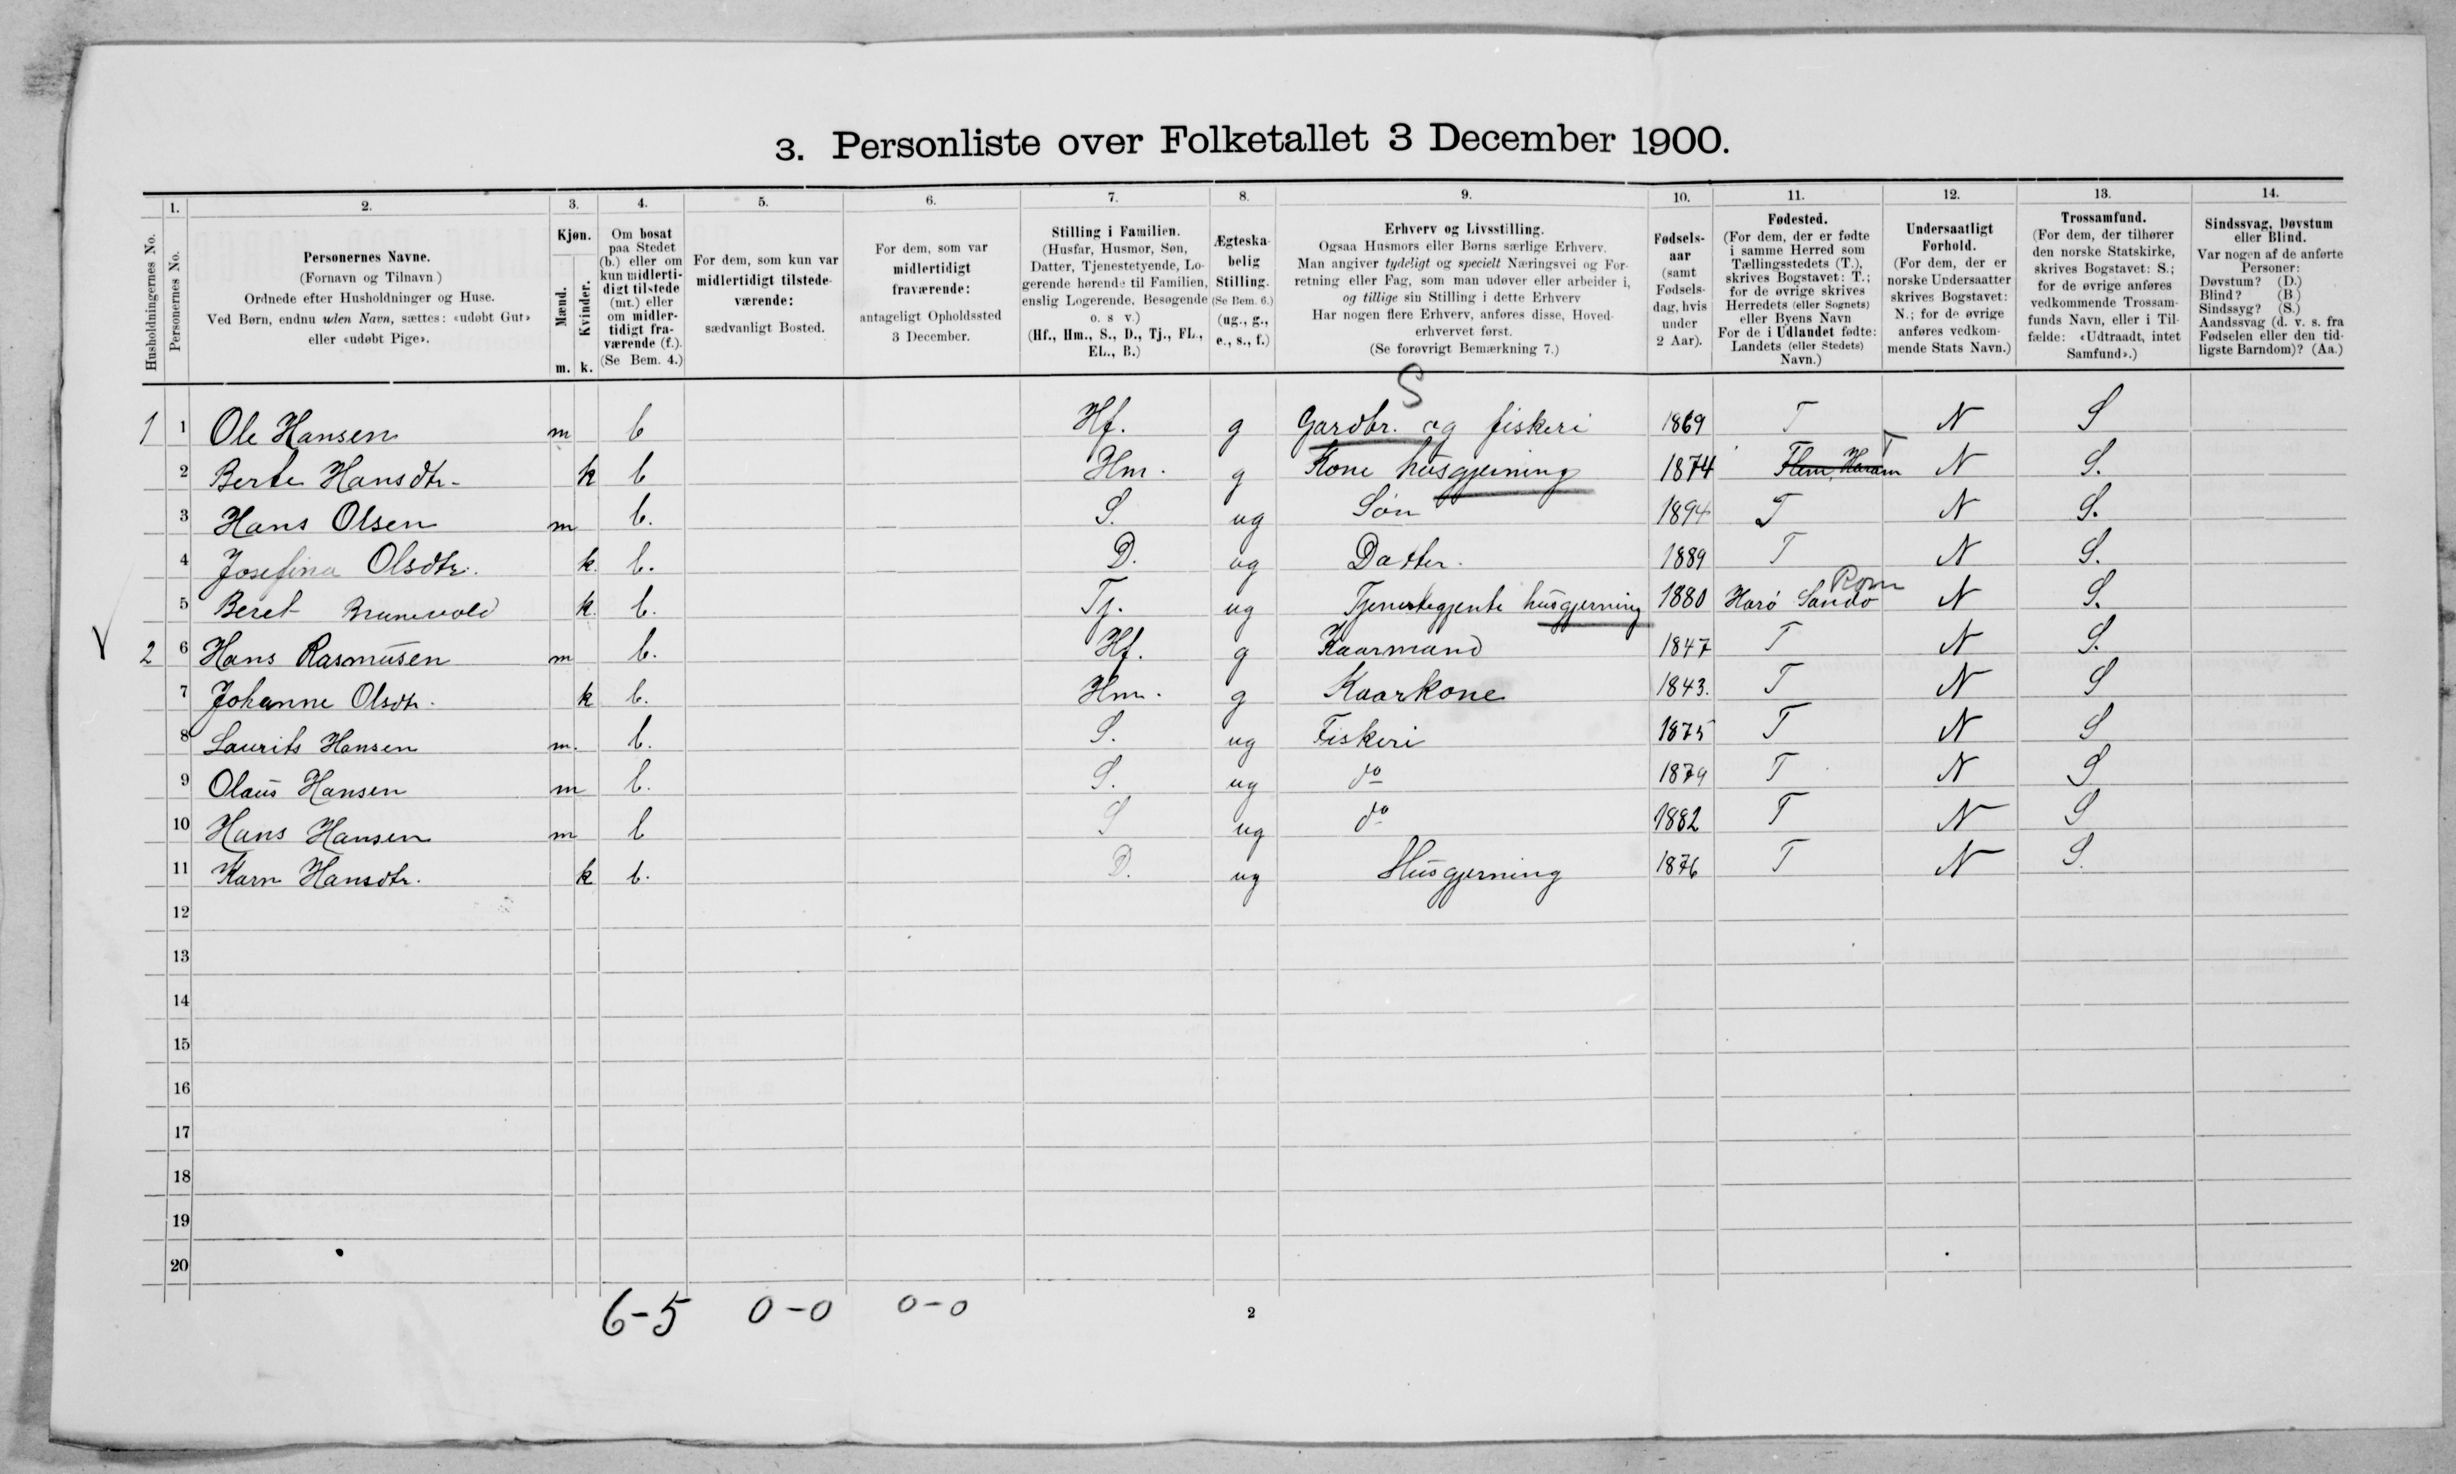 3. Personliste over Folketallet 3 December 1900.
1. 2. 3. 4. 5. 6. 7. 8. 9. 10. 11. 12. 13. 14.
Husholdningernes No.
Personernes No.
Personernes Navne.
(Fornavn og Tilnavn)
Ordnede efter Husholdninger og Huse.
Ved Børn, endnu uden Navn, sættes: «udøbt Gut»
eller «udøbt Pige».
Kjøn.
Mænd.
Kvinder.
m. k.
Om bosat
paa Stedet
(b.) eller om
kun midlerti-
digt tilstede
(mt.) eller
om midler-
tidigt fra-
værende (f.).
(Se Bem. 4.)
For dem, som kun var
midlertidigt tilstede-
værende:
sædvanligt Bosted.
For dem, som var
midlertidigt
fraværende:
antageligt Opholdssted
3 December.
Stilling i Familien.
(Husfar, Husmor, Søn,
Datter, Tjenestetyende, Lo-
gerende hørende til Familien,
enslig Logerende, Besøgende
o. s v.)
(Hf., Hm., S., D., Tj., FL.,
EL., B.)
Ægteska-
belig
Stilling.
(Se Bem. 6.)
(ug., g.,
e., s., f.)
Erhverv og Livsstilling.
Ogsaa Husmors eller Børns særlige Erhverv.
Man angiver tydeligt og specielt Næringsvei og For-
retning eller Fag, som man udøver eller arbeider i,
og tillige sin Stilling i dette Erhverv
Har nogen flere Erhverv, anføres disse, Hoved-
erhvervet først.
(Se forøvrigt Bemærkning 7.)
Fødsels-
aar
(samt
Fødsels-
dag, hvis
under
2 Aar).
Fødested.
(For dem, der er fødte
i samme Herred som
Tællingsstedets (T.),
skrives Bogstavet: T.;
for de øvrige skrives
Herredets (eller Sognets)
eller Byens Navn
For de i Udlandet fødte:
Landets (eller Stedets)
Navn.)
Undersaatligt
Forhold.
(For dem, der er
norske Undersaatter
skrives Bogstavet:
N.; for de øvrige
anføres vedkom-
mende Stats Navn.)
Trossamfund.
(For dem, der tilhører
den norske Statskirke,
skrives Bogstavet: S.;
for de øvrige anføres
vedkommende Trossam-
funds Navn, eller i Til-
fælde: «Udtraadt, intet
Samfund».)
Sindssvag, Døvstum
eller Blind.
Var nogen af de anførte
Personer:
Døvstum? (D.)
Blind? (B.)
Sindssyg? (S.)
Aandssvag (d. v. s. fra
Fødselen eller den tid-
ligste Barndom)? (Aa.)
S
1 1 Ole Hansen m b Hf. g Gardbr. og fiskeri 1869 T N S
2 Berte Hansdtr. k b Hm. g Kone husgjerning 1874 Flem, Haram T N S.
3 Hans Olsen m b. S. ug Søn 1894 T N S.
4 Josefina Olsdtr. k. b. D. ug Datter. 1889 T N S.
5 Beret Brunevold k. b. Tj. ug Tjenestegjente husgjerning 1880 Harø Sandø Rom N S.
2 6 Hans Rasmusen m b. Hf. g Kaarmand 1847 T N S.
7 Johanne Olsdtr. k b. Hm. g Kaarkone 1843. T N S
8 Laurits Hansen m. b. S. ug Fiskeri 1875 T N S
9 Olaus Hansen m b. S. ug do 1879 T N S
10 Hans Hansen m b S ug do 1882 T N S
11 Karn Hansdtr. k b. D. ug Husgjerning 1876 T N S.
12
13
14
15
16
17
18
19
20
6-5 0-0 0-0
2